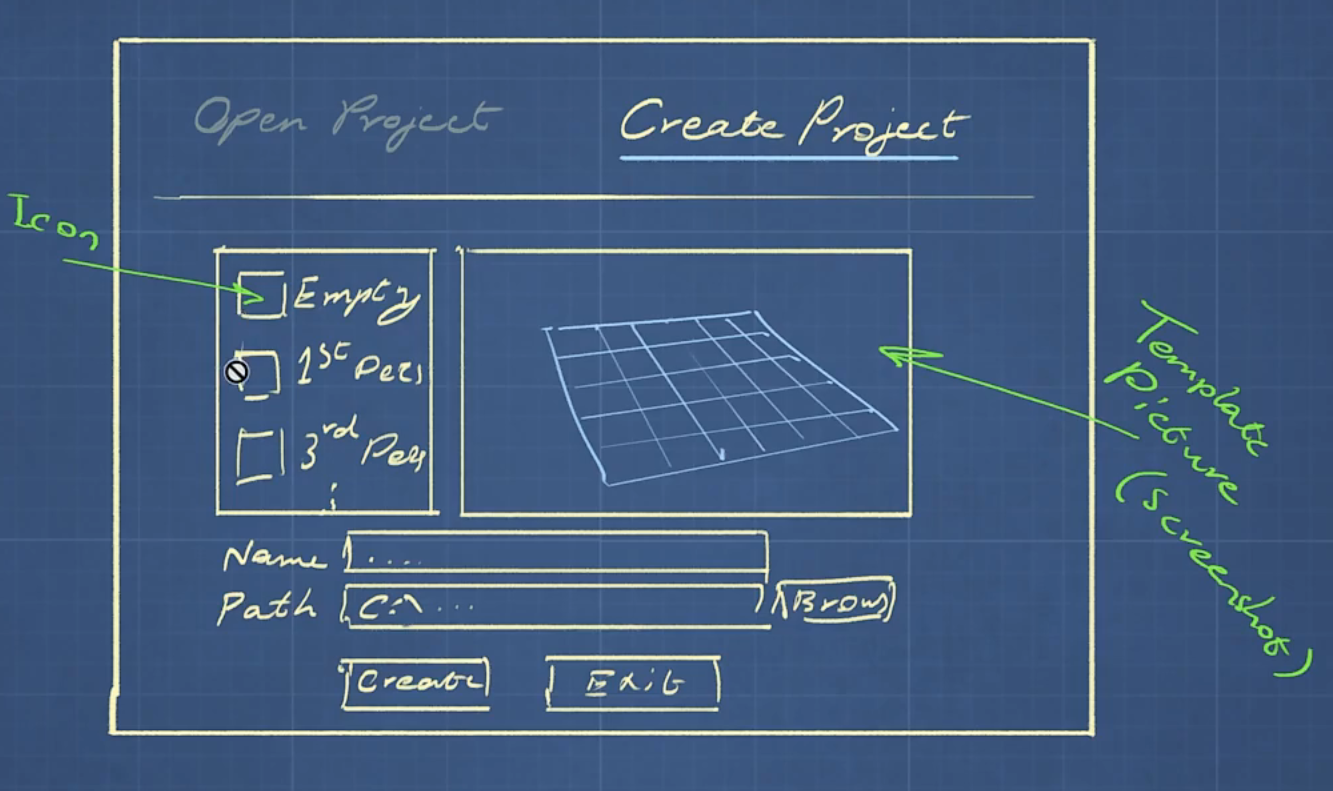 Open Project
Create Project
Icon
Empty
1st Pers
3rd Pers
Template
Picture
(screenshot)
Name ....
Path C:\ ...
Brows
Create
Exit